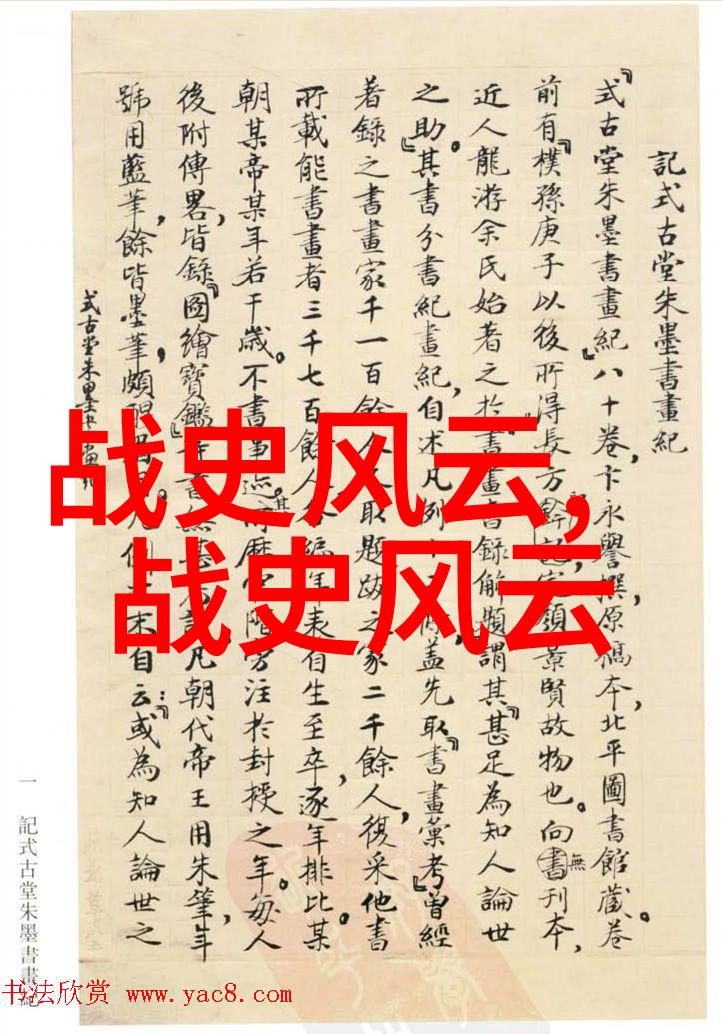 記式古堂朱墨書畫紀
『式古堂朱墨書畫紀』八十卷,卞永譽撰,原稿本,北平圖書館藏。卷
前有『樸孫庚子以後所得』長方
景賢故物也。向無書刊本,
近人龍游余氏始著之於書畫書錄解題,謂其『甚足為知人論世
之助。』其書分書紀畫紀,自述凡例
蓋先取『書畫彙考』曾經
著錄之書畫家千一百餘人
取題跋之家二千餘人,復采他書
所載能書畫者三千七百餘人
年表自生至卒,逐年排比。某
朝某帝某年若干歲。不書事迹,其
官階
注於封授之年。每人
後附傳畧,皆錄『圖繪寶鑑』
凡朝代帝王用朱筆,年
號用藍筆,餘皆墨筆,頗
末自云:『或為知人論世之
式古堂朱墨書畫紀
一 記式古堂朱墨書畫紀
战史风云,
战史风云
书法欣赏 www.yac8.com